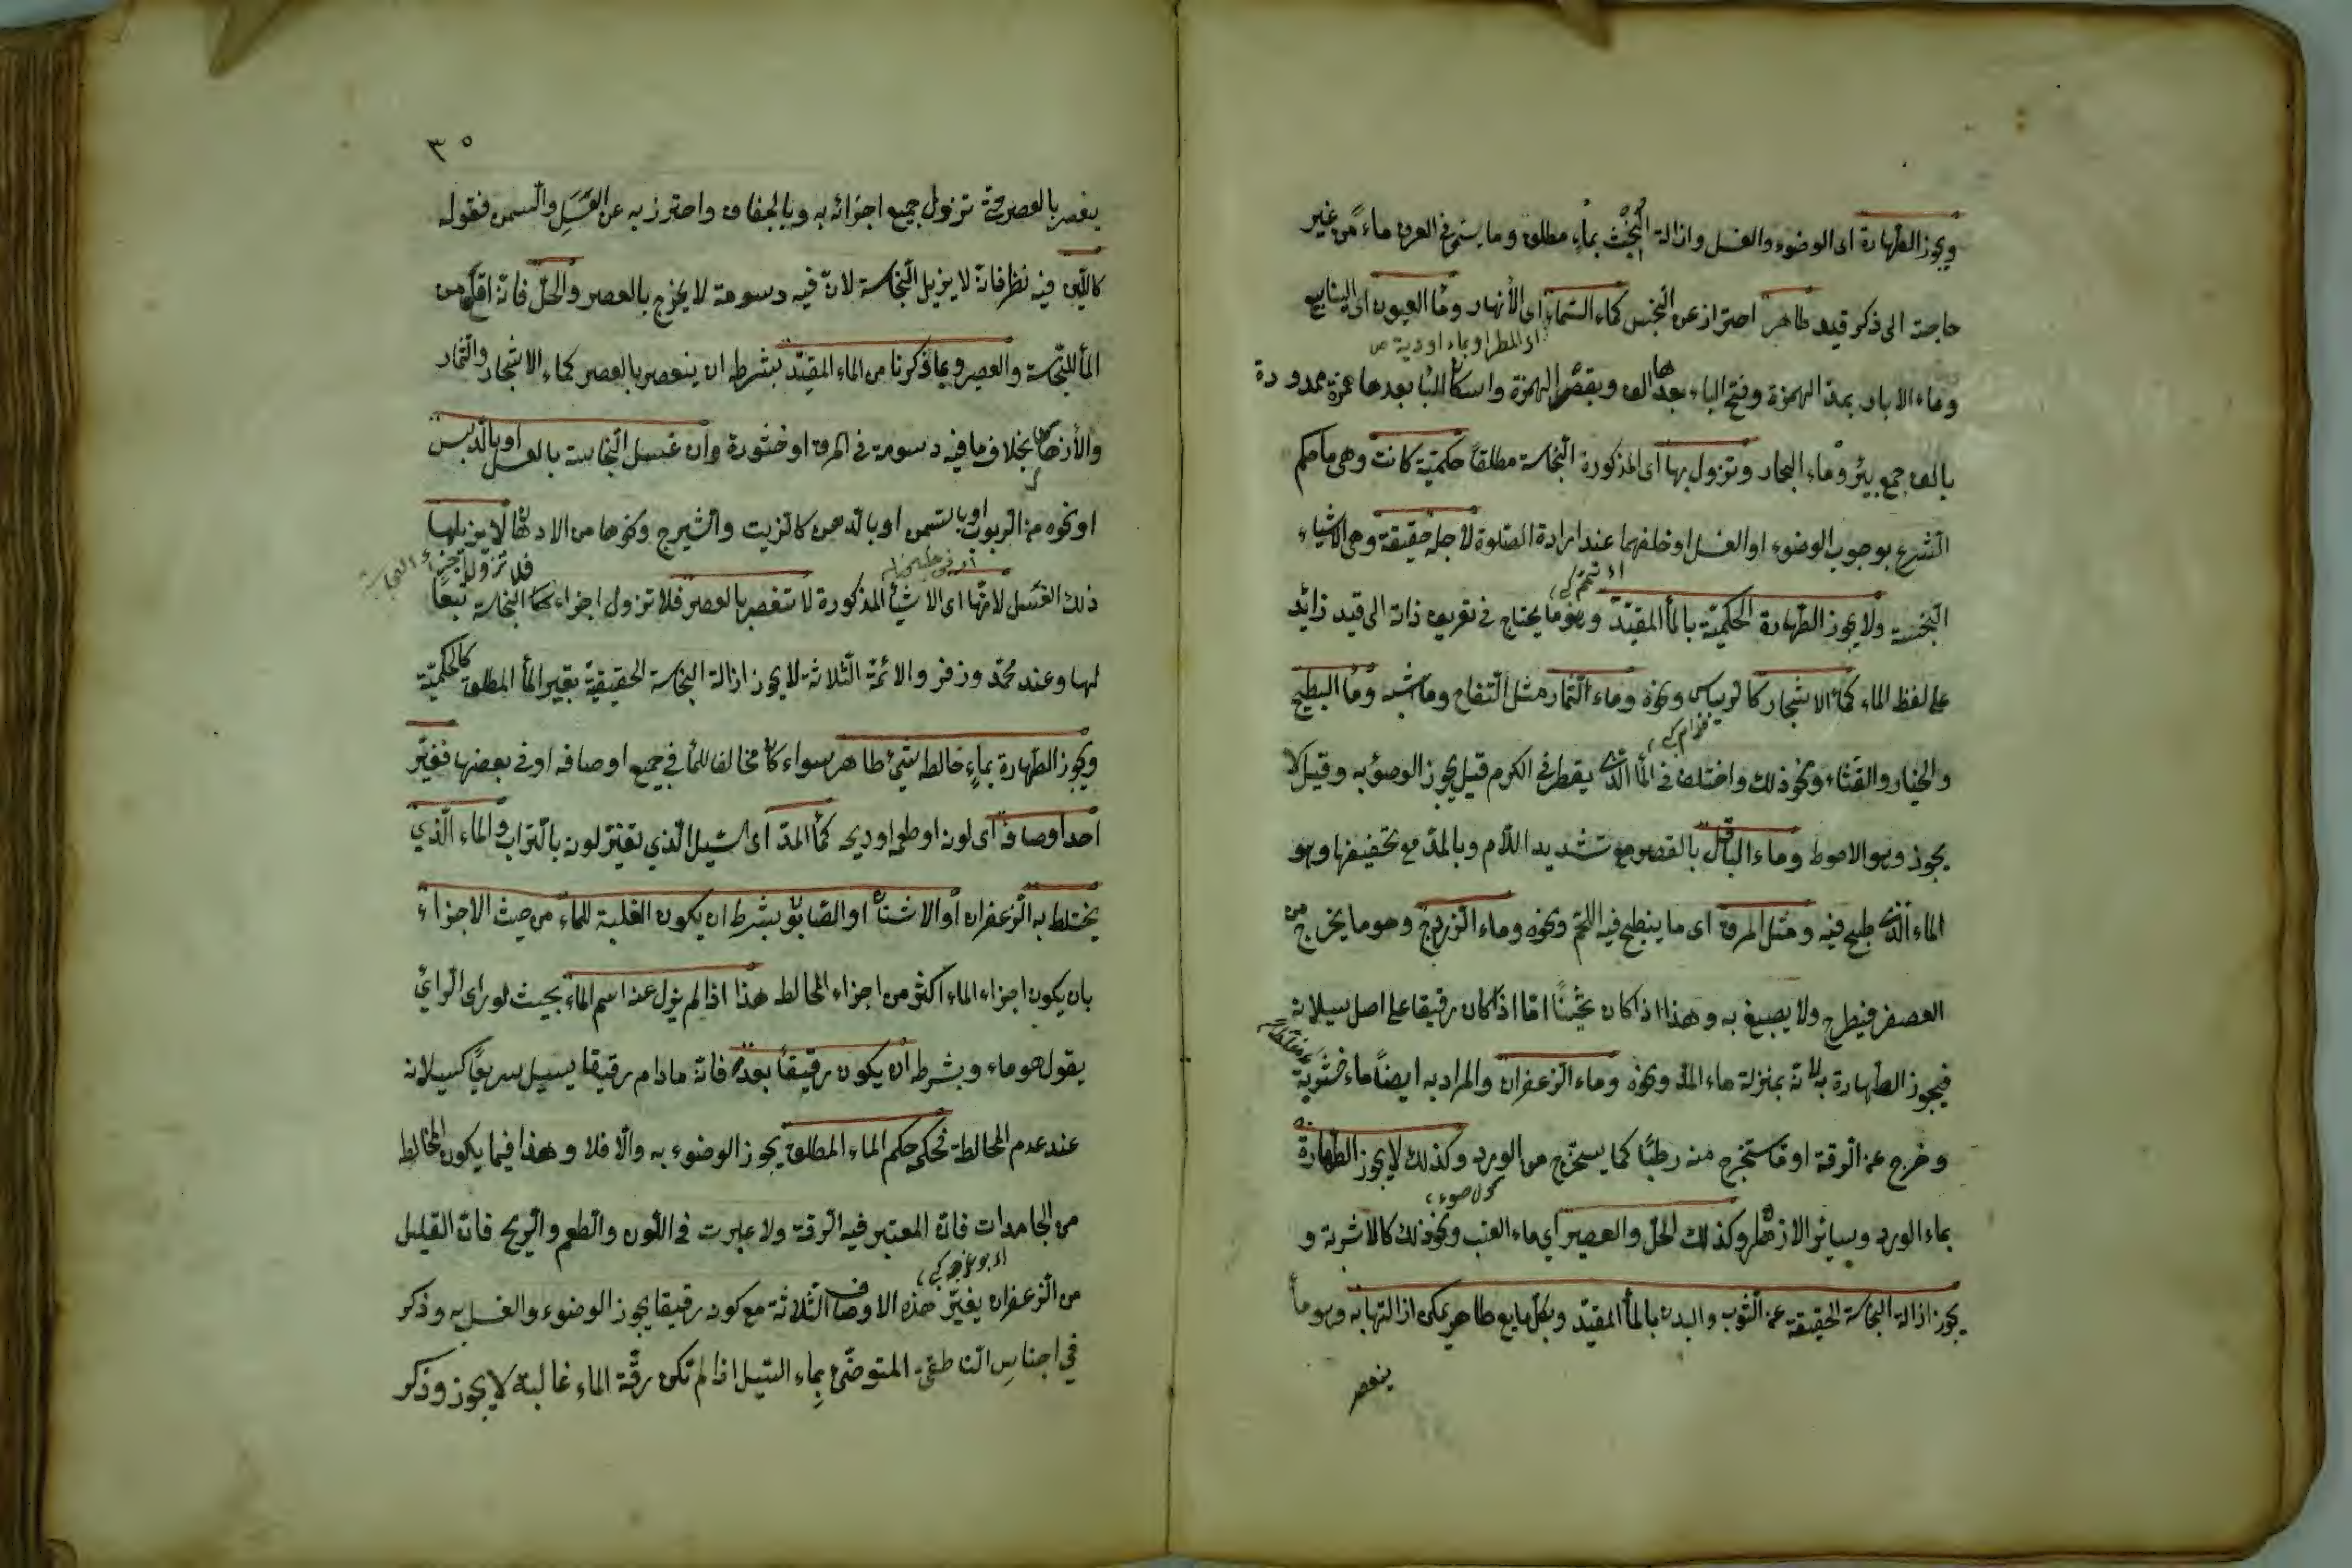 ويجوز الطهارة اى الوضوء والغسل وازالة الخبث بماء مطلق وما يسمى في العرف ماء من غير
حاجة الى ذكر قيد طاهر احتراز عن النجس كماء السماء اى الأنهار وماء العيون اى الينابيع
اى المطر او بماء اودية ص
وماء الابار بمد الهمزة وفتح الباء بعدها الف وبقصر الهمزة واسكان الباء بعدها همزة ممدودة
بالف جمع بئر وماء البحار وتزول بها اى المذكورة النجاسة مطلقاً حكمية كانت وهى ما حكم
الشرع بوجوب الوضوء او الغسل او خلفهما عند ارادة الصلوة لأجله حقيقة وهى الاشياء
النجسة ولا يجوز الطهارة الحكمية بالماء المقيد وهو ما يحتاج في تعريف ذاته الى قيد زائد
على لفظ الماء كماء الاشجار كالريباس ونحوه وماء الثمار مثل التفاح وما شبه وماء البطيخ
والخيار والقثاء ونحو ذلك واختلف في الماء الذى يقطر في الكرم قيل يجوز الوضوء به وقيل لا
يجوز وهو الاحوط وماء الباقلى بالقصر مع تشديد اللام وبالمد مع تخفيفها وهو
الماء الذى طبخ فيه ومثل المرق اى ما ينطبخ فيه اللحم ونحوه وماء الزردج وهو ما يخرج من
العصفر فيطرح ولا يصبغ به وهذا اذا كان ثخيناً امّا اذا كان رقيقا على اصل سيلانه
فيجوز الطهارة به لانه بمنزلة ماء المد ونحوه وماء الزعفران والمراد به ايضاً ماء خثر به
وخرج عن الرقة او ما ستخرج منه رطبًا كما يستخرج من الورد وكذلك لا يجوز الطهارة
بماء الورد وسائر الازهار وكذلك الخل والعصير اي ماء العنب ونحو ذلك كالاشربة و
يجوز ازالة النجاسة الحقيقة عن الثوب والبدن بالماء المقيد وبكل مايع طاهر يمكن ازالتها به وهو ما
ينعصر
٣٥
ينعصر بالعصر حتى تزول جميع اجزائه به وبالجفاف واحترز به عن العسل والسمن فقوله
كاللبن فيه نظر فانه لا يزيل النجاسة لان فيه دسومة لا يخرج بالعصر والخل فانه اقلع من
الماء للنجاسة والعصير وبما ذكرنا من الماء المقيد بشرط ان ينعصر بالعصر كماء الاشجار والثمار
والأزهار بخلاف ما فيه دسومة في المرق او خثورة وان غسل النجاسة بالعسل او بالدبس
او نحوه من الربوب او بالسمن او بالدهن كالزيت والشيرج ونحوها من الادهان لا يزيلها
ذلك الغسل لانها اى الاشياء المذكورة لا تنعصر بالعصر فلا تزول اجزاء النجاسة تبعًا
لها وعند محمد وزفر والائمة الثلاثة لا يجوز ازالة النجاسة الحقيقية بغير الماء المطلق كالحكمية
ويجوز الطهارة بماءٍ خالطه شئ طاهر سواء كان مخالفا للماء في جميع اوصافه او في بعضها فغير
احد اوصافه اى لون او طعم او ريح كماء المد اى السيل الذي تغير لونه بالتراب والماء الذي
يختلط به الزعفران او الاشنان او الصابون بشرط ان يكون الغلبة للماء من حيث الاجزاء
بان يكون اجزاء الماء اكثر من اجزاء المخالط هذا اذا لم يزل عنه اسم الماء بحيث لو راى الرائ
يقول هو ماء وبشرط ان يكون رقيقًا بعد فانه مادام رقيقا يسيل سريعًا كسيلانه
عند عدم المخالطة فحكمه حكم الماء المطلق يجوز الوضوء به والا فلا وهذا فيما يكون المخالط
من الجامدات فان المعتبر فيه الرقة ولا عبرت في اللون والطعم والريح فان القليل
من الزعفران يغير هذه الاوصاف الثلاثة مع كونه رقيقا يجوز الوضوء والغسل به وذكر
في اجناسِ الناطفى المتوضئ بماء السيل اذا لم تكن رقة الماء غالبة لا يجوز وذكر